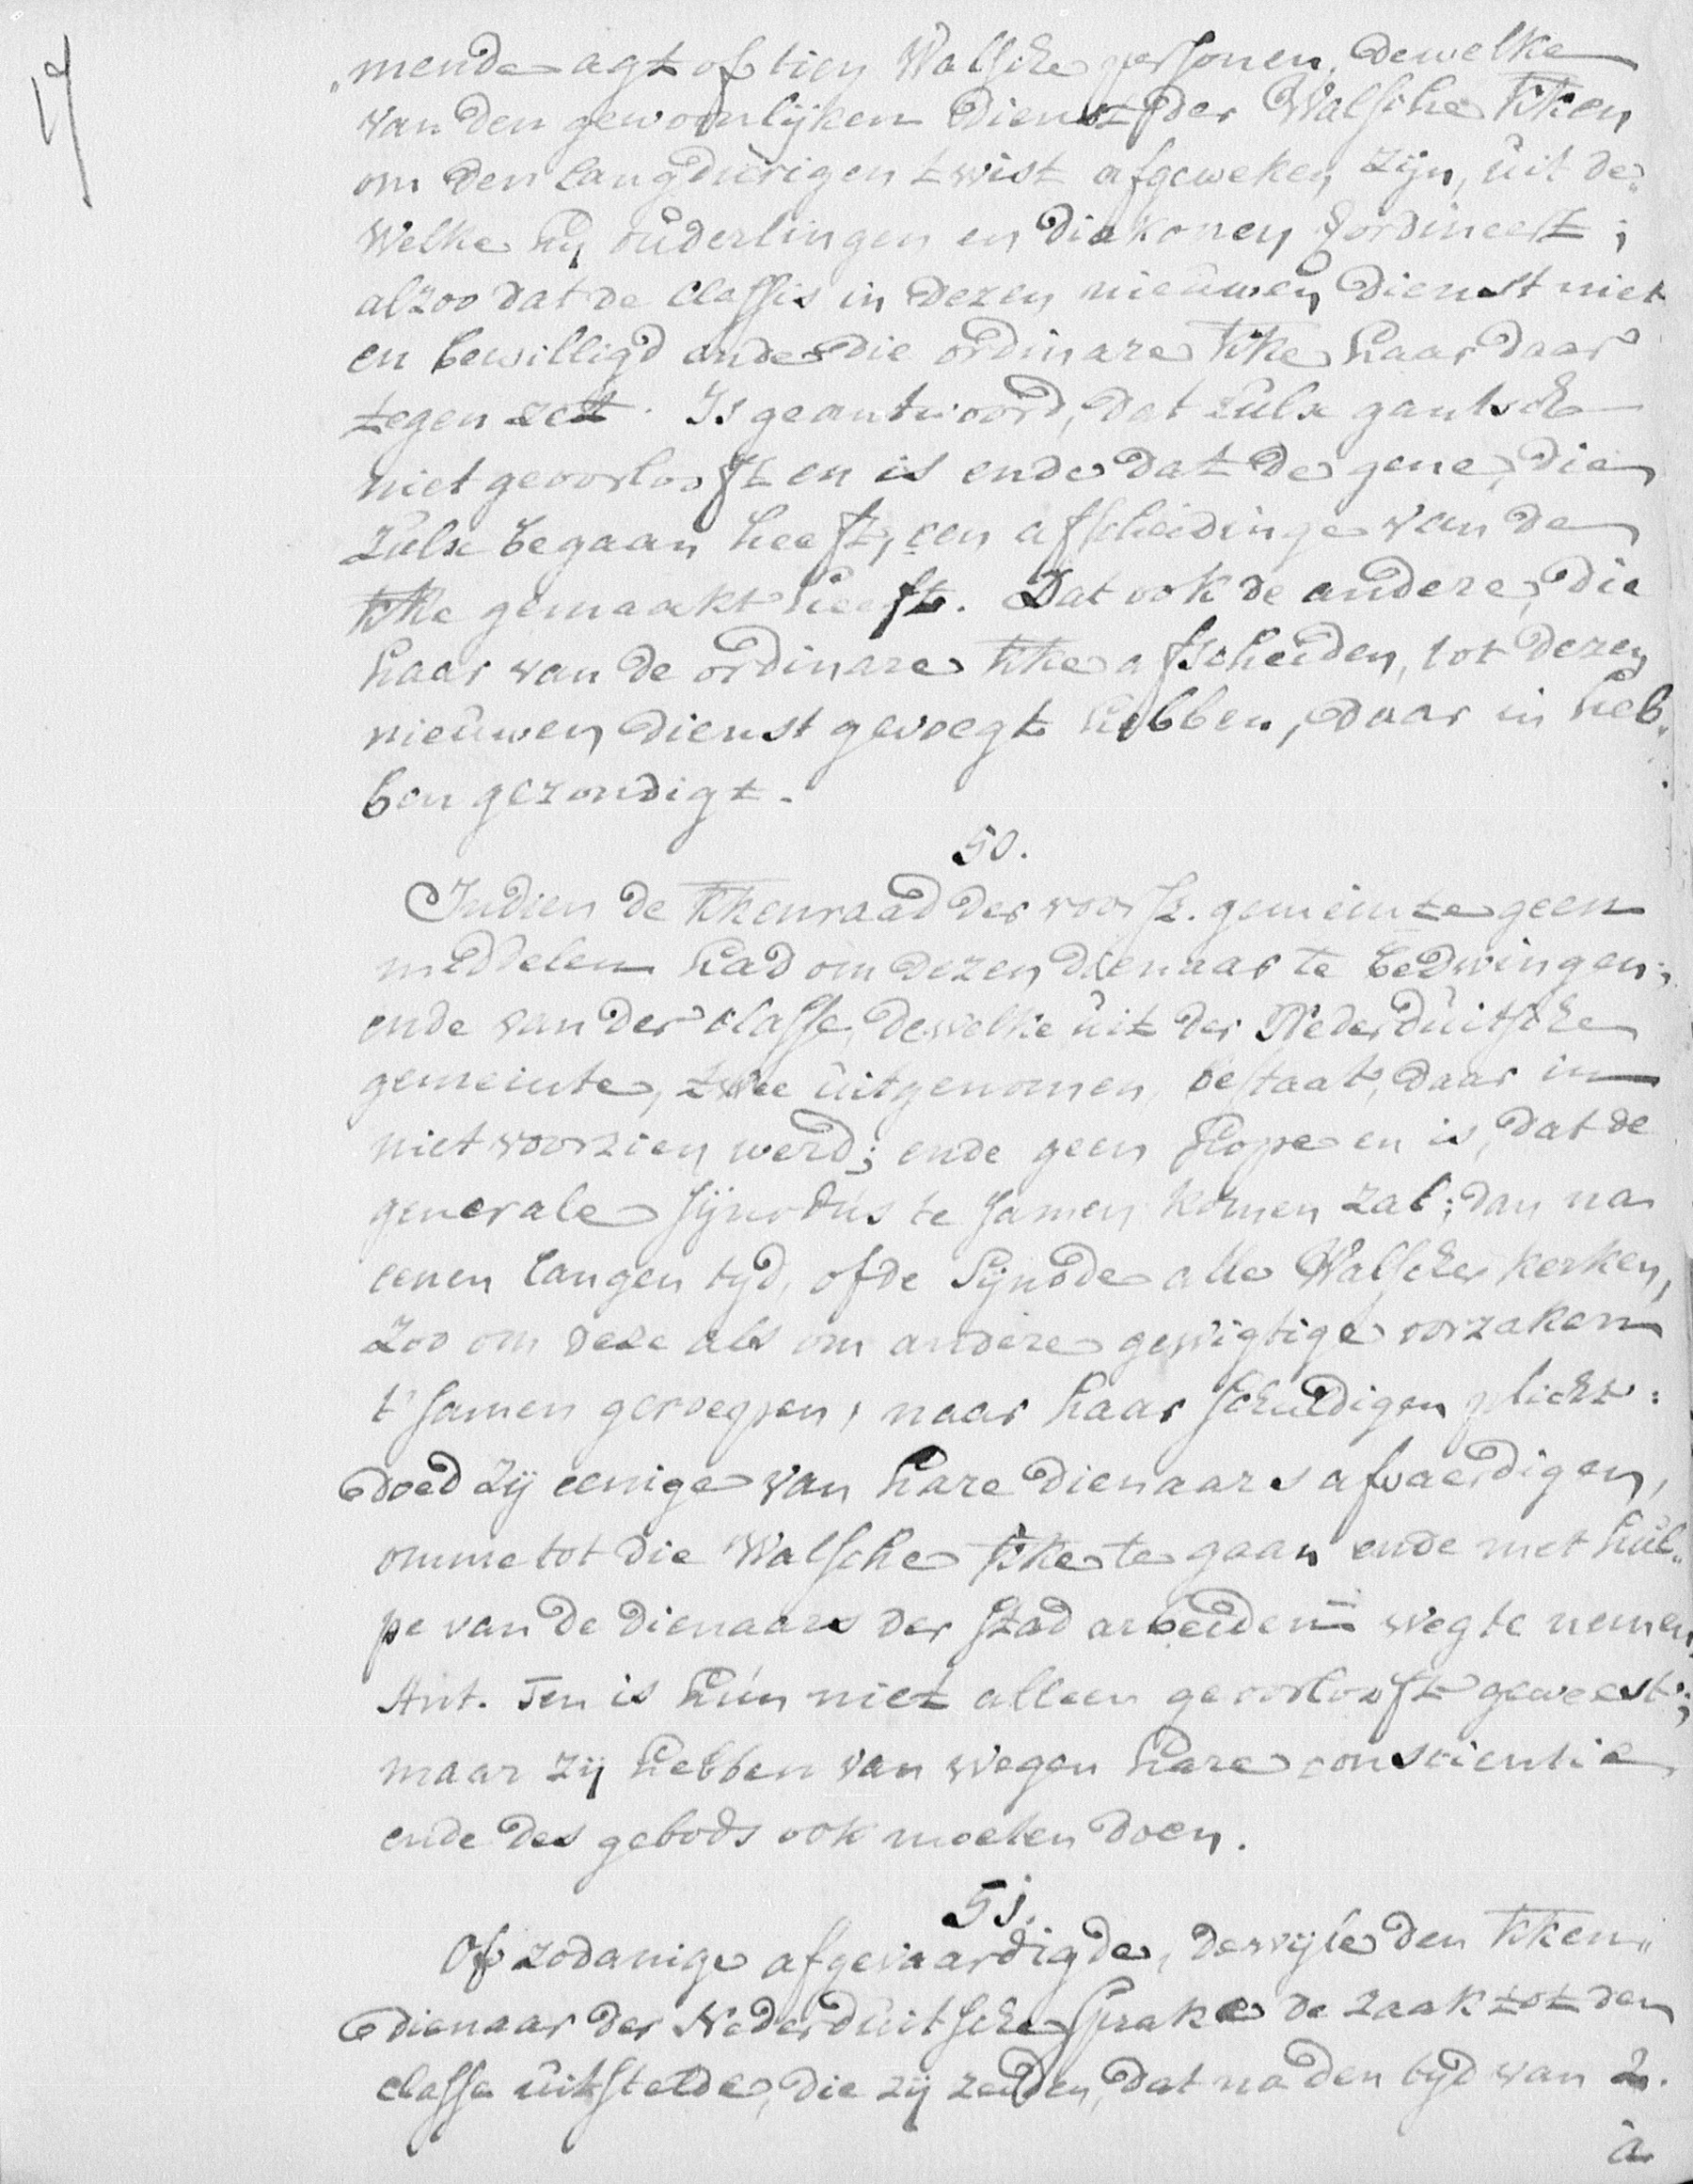 „mende agt of tien Walsche personen, dewelke
van den gewoonlijken dienst der Walsche kken
om den langdurigen twist afgeweken zijn, uit de„
welke hij ouderlingen en diakonen ordineert;
alzoo dat de classis in dezen nieuwen dienst niet
en bewilligd ende die ordinare kke haar daar
tegen zet. Is geantwoord, dat zulx gantsch
niet geoorlooft en is ende dat de gene, die
zulx begaan heeft, een afscheidinge van de
kke gemaakt heeft. Dat ook de andere, die
haar van de ordinare kke afscheiden, tot dezen
nieuwen dienst gevoegt hebben, daar in heb„
ben gezondigt.
50.
Indien de kkenraad der voorsz. gemeinte geen
middelen had om dezen dienaar te bedwingen;
ende van der classe, dewelke uit der Nederduitsche
gemeinte, twee uitgenomen, bestaat, daar in
niet voorzien werd; ende geen hope en is, dat de
generale synodus te samen komen zal; dan na
eenen langen tyd, of de Synode alle Walsche kerken,
zoo om deze als om andere gewigtige oorzaken
t' samen geroepen, naar haar schuldigen plicht:
doed zij eenige van hare dienaars afvaerdigen,
omme tot die Walsche kke te gaan ende met hul„
pe van de dienaars der stad arbeiden weg te nemen,
Ant. Ten is hun niet alleen geoorlooft geweest;
maar zij hebben van wegen hare conscientie
ende des gebods ook moeten doen.
51.
Of zodanige afgevaardigde, derwijle den kken„
dienaar der Nederduitsche sprake de zaak tot den
classe uitstelde, die zij zeiden, dat na den tijd van 2.
à